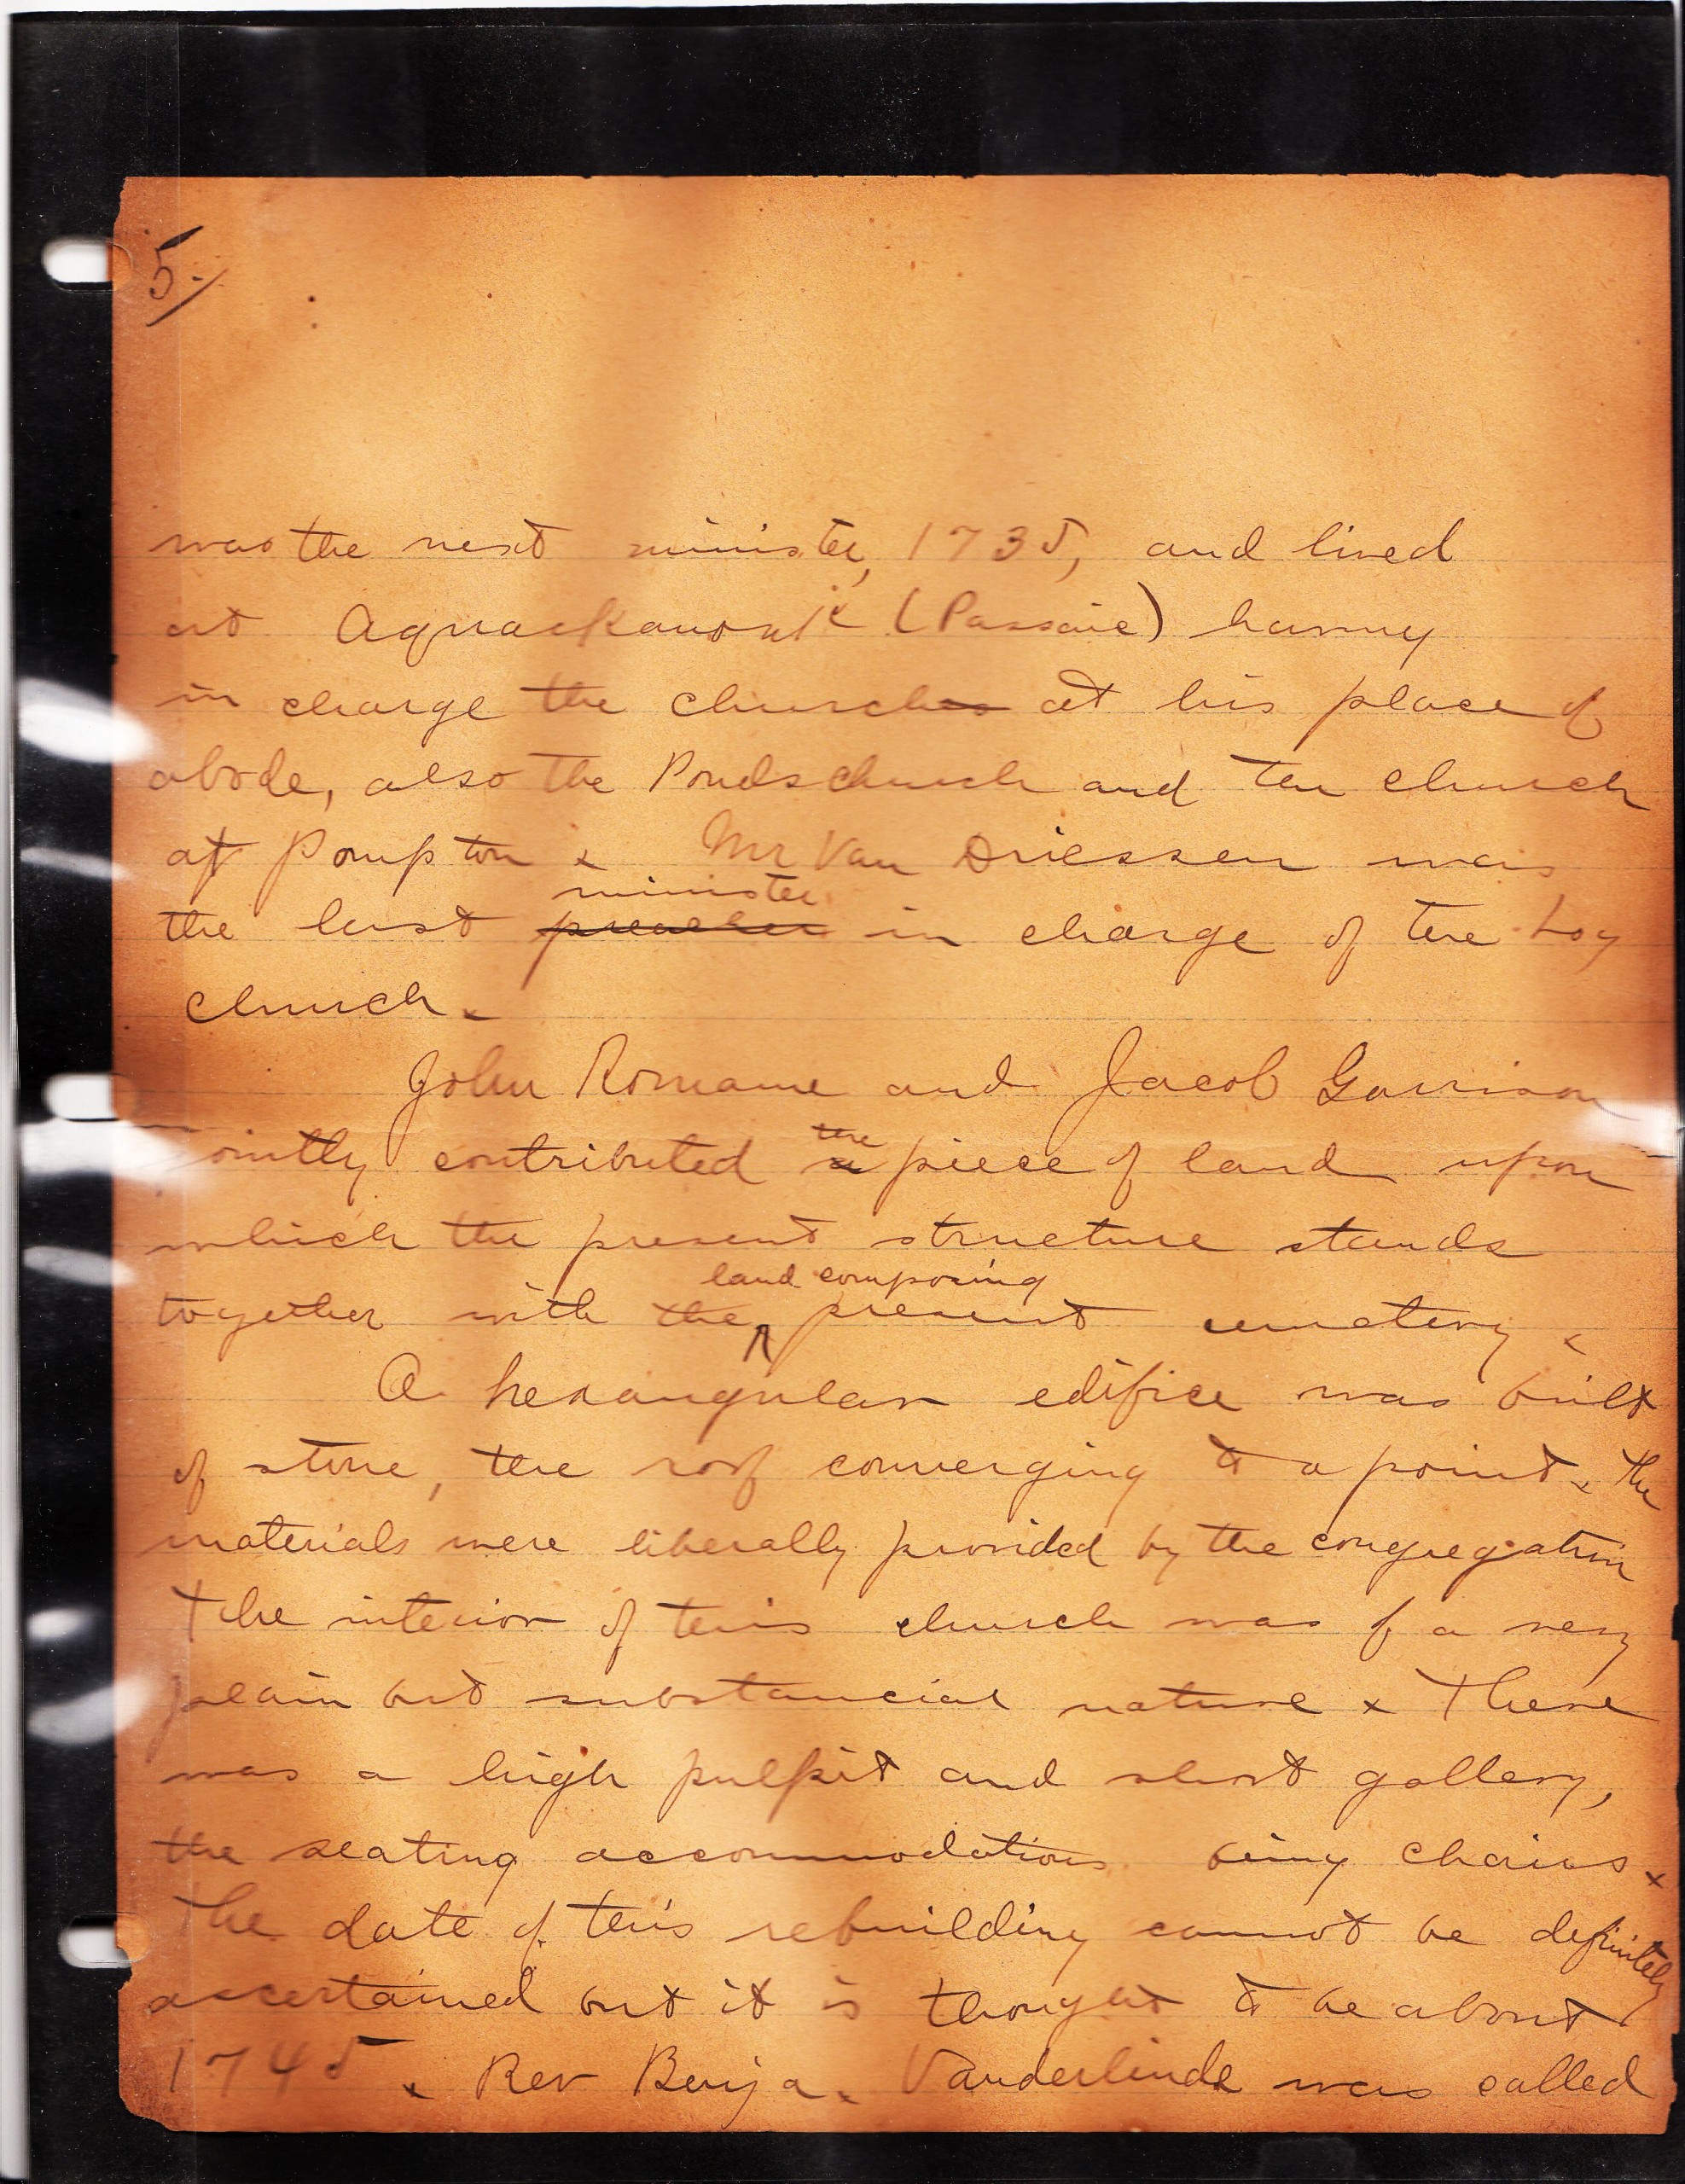 5.
was the next minister, 1735, and lived
at Aquackanonk (Passaic) having
in charge the churches at his place of
abode, also the Ponds church and the church
at Pompton x Mr Van Driessen was
minister
the last preacher in charge of the Log
church.
John Romaine and Jacob Garrison
jointly contributed the a piece of land upon
which the present structure stands
land composing
together with the present cemetery x
A hexangular edifice was built
of stone, the roof converging to a point x the
materials were liberally provided by the congregation
The interior of this church was of a very
plain but substancial nature x There
was a high pulpit and short gallery,
the seating accommodations being chairs x
The date of this rebuilding cannot be definitely
ascertained but it is thought to be about
1745 x Rev Benja. Vanderlinde was called